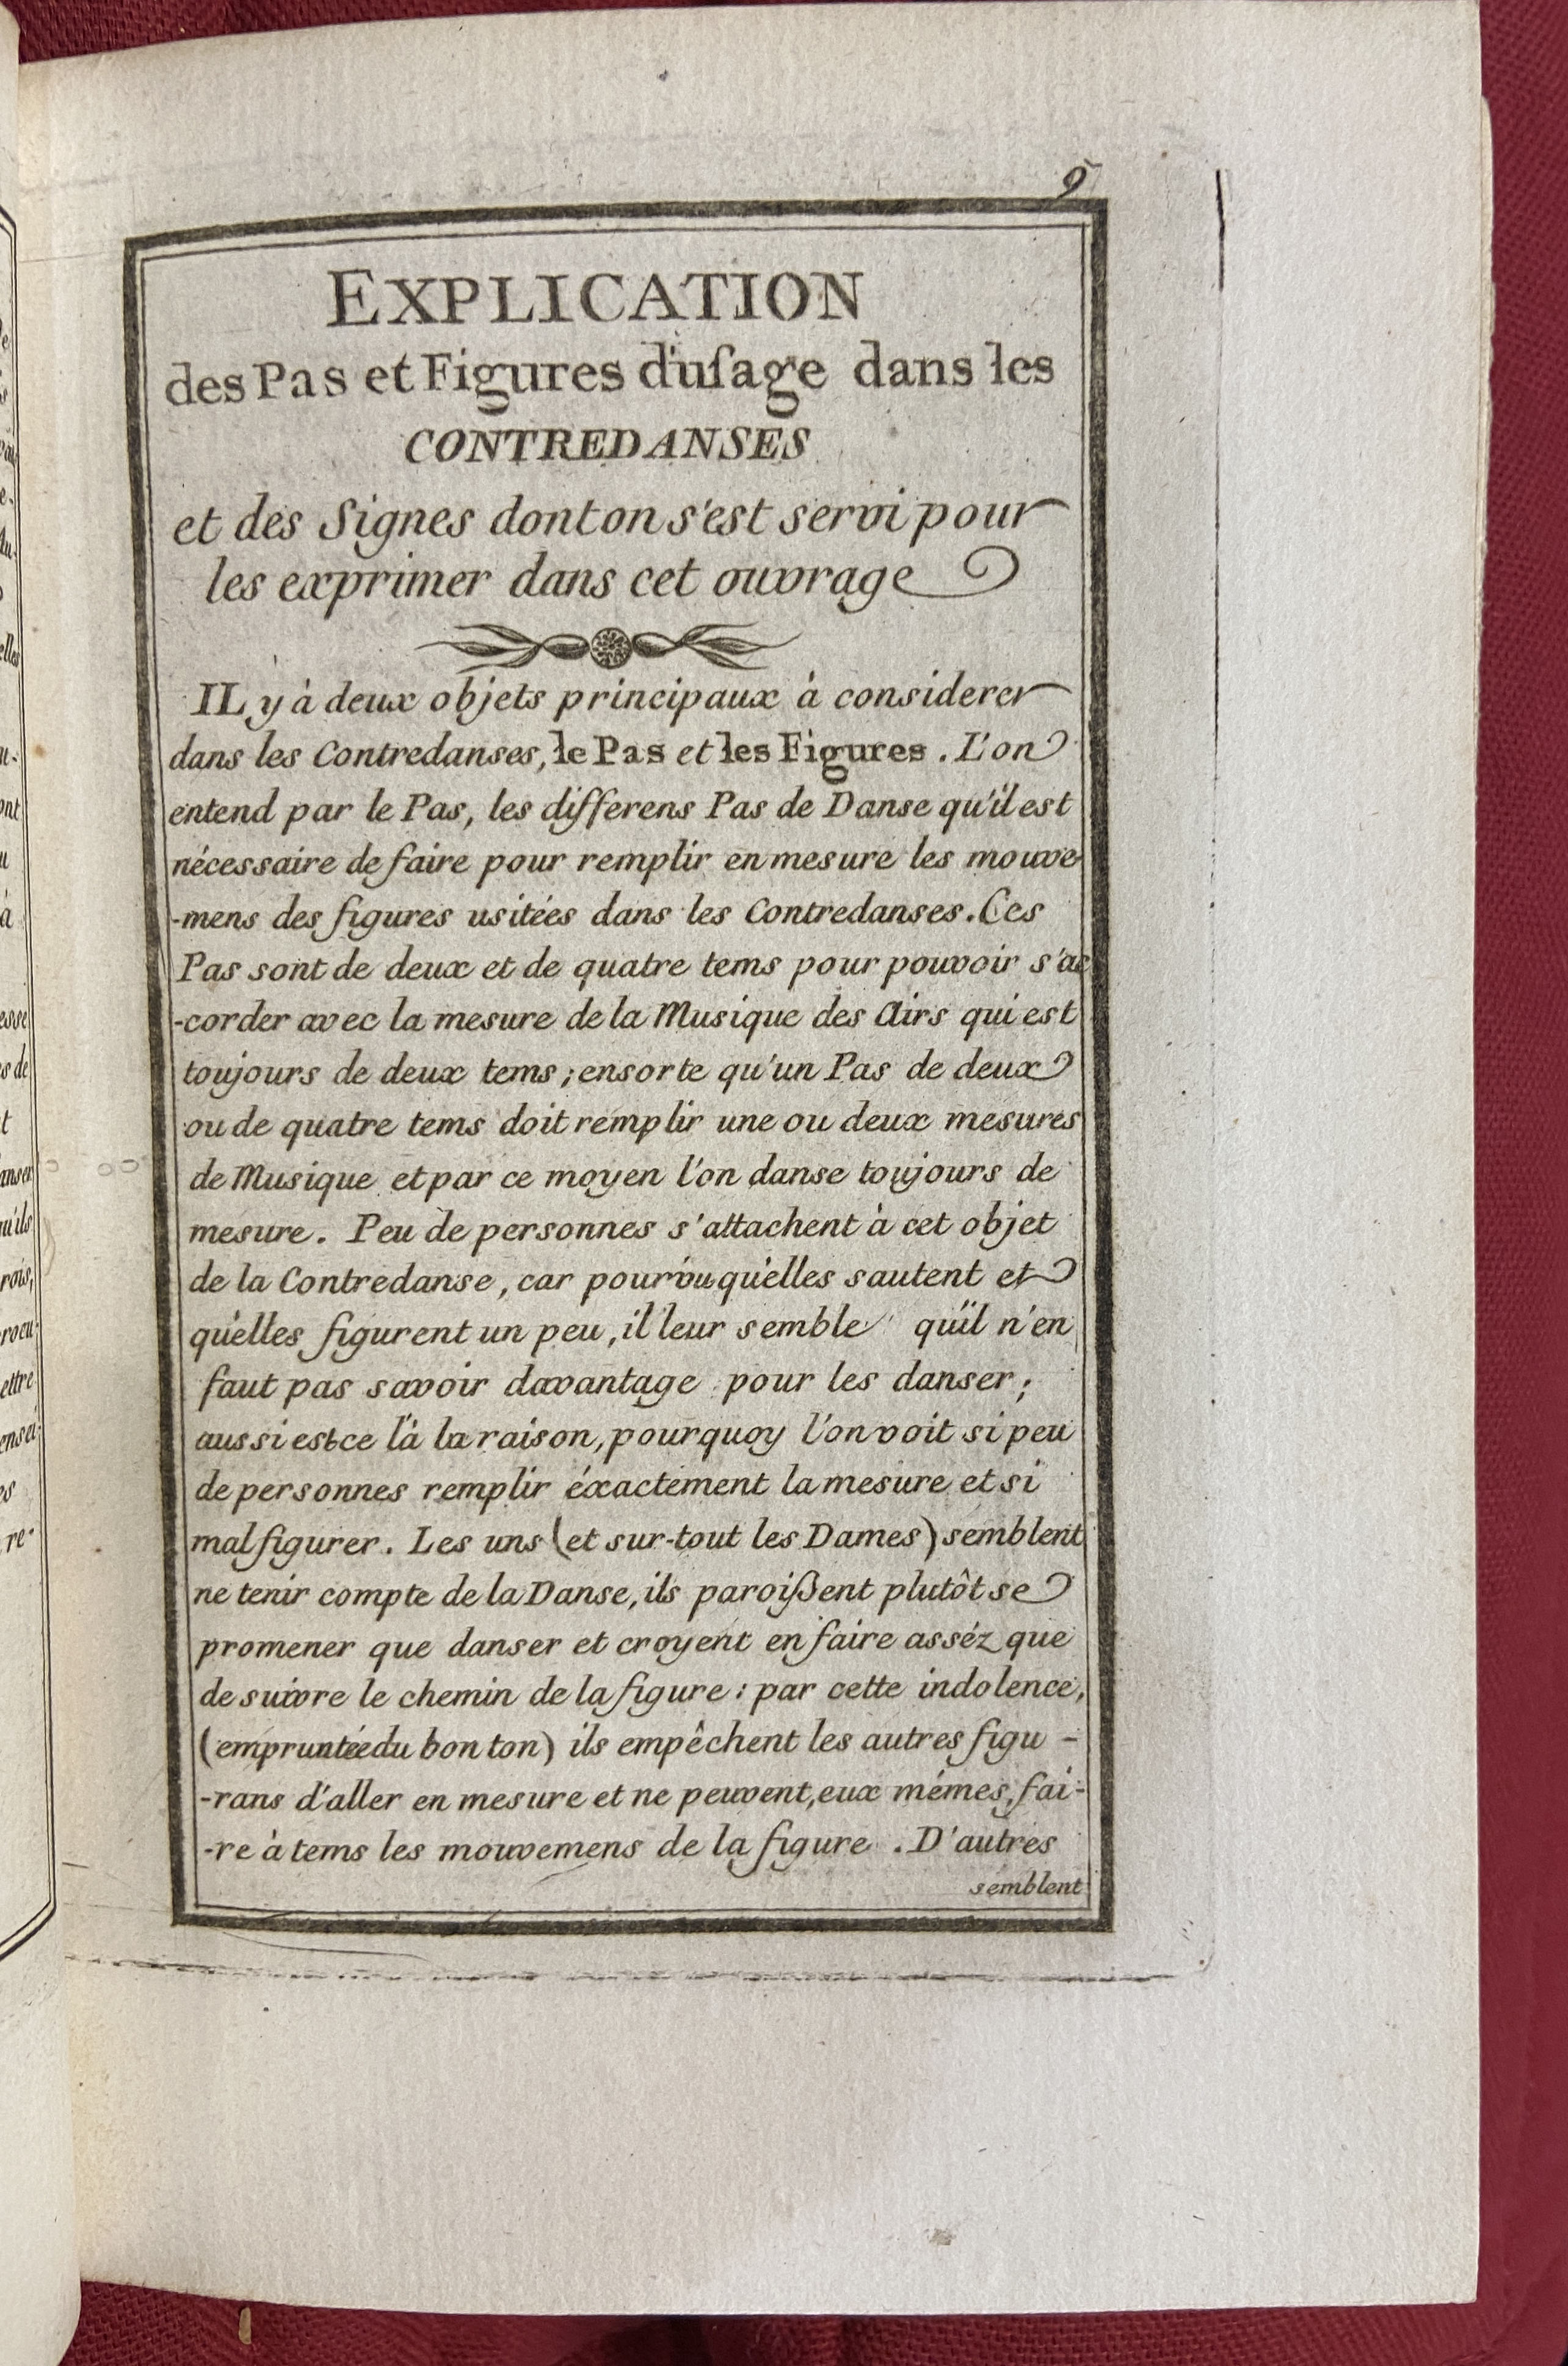 9
EXPLICATION
des Pas et Figures d'uſage dans les
CONTREDANSES
et des Signes dont on s'est servi pour
les exprimer dans cet ouvrage
IL y à deux objets principaux à considerer
dans les Contredanses, le Pas et les Figures. L'on
entend par le Pas, les differens Pas de Danse qu'il est
nécessaire de faire pour remplir en mesure les mouve-
-mens des figures usitées dans les Contredanses. Ces
Pas sont de deux et de quatre tems pour pouvoir s'ac
-corder avec la mesure de la Musique des Airs qui est
toujours de deux tems; ensorte qu'un Pas de deux
ou de quatre tems doit remplir une ou deux mesures
de Musique et par ce moyen l'on danse toujours de
mesure. Peu de personnes s'attachent à cet objet
de la Contredanse, car pourvu qu'elles sautent et
qu'elles figurent un peu, il leur semble qu'il n'en
faut pas savoir davantage pour les danser;
aussi est-ce là la raison, pourquoy l'on voit si peu
de personnes remplir éxactement la mesure et si
mal figurer. Les uns (et sur-tout les Dames) semblent
ne tenir compte de la Danse, ils paroißent plutôt se
promener que danser et croyent en faire asséz que
de suivre le chemin de la figure: par cette indolence,
(empruntée du bon ton) ils empêchent les autres figu -
-rans d'aller en mesure et ne peuvent, eux mémes, fai-
-re à tems les mouvemens de la figure. D'autres
semblent